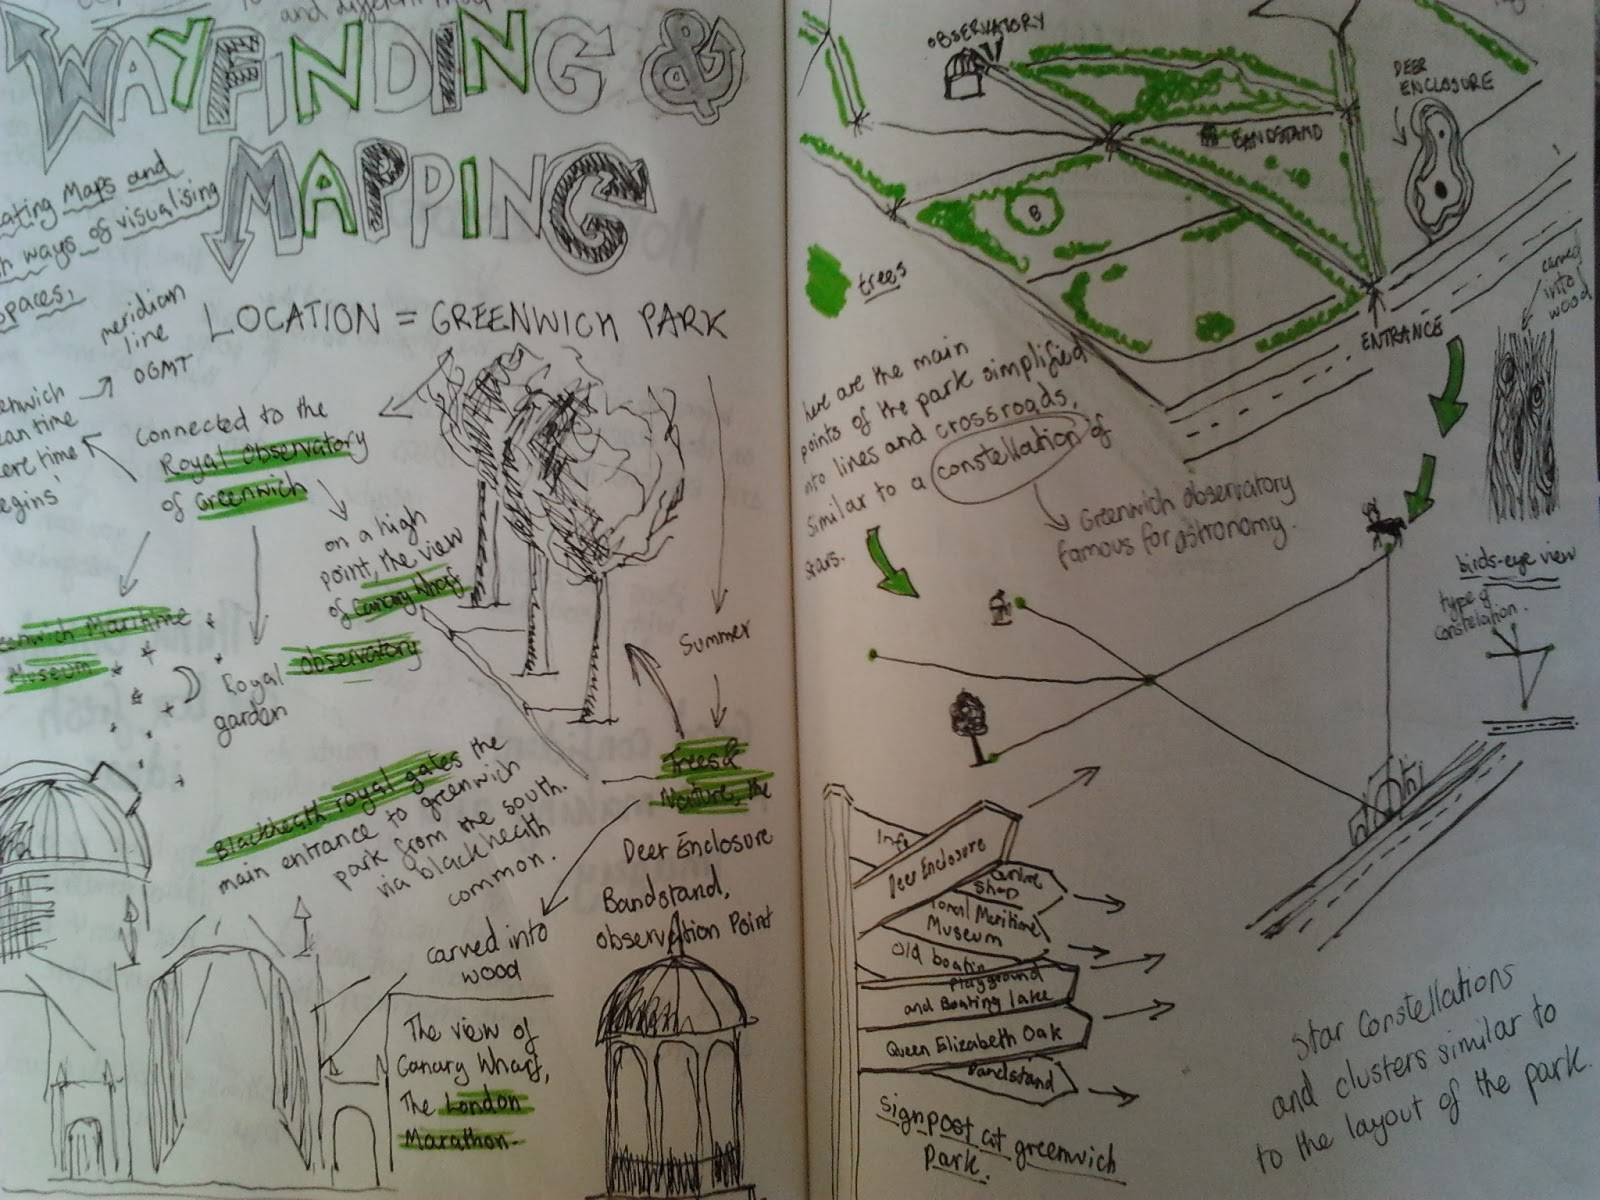 and different
WAYFINDING &
MAPPING
Maps and
ways of visualising
spaces,
LOCATION = GREENWICH PARK
meridian
line
0GMT
mean time
where time
begins'
Connected to the
Royal Observatory
of Greenwich
on a high
point, the view
of Canary Wharf
Greenwich Maritime
Museum
Royal
garden
Observatory
Summer
Trees &
Nature, the
Deer Enclosure
Bandstand,
observation Point
Blackheath royal gates the
main entrance to greenwich
park from the south.
via blackheath
common.
carved into
wood
The view of
Canary Wharf,
The London
Marathon.
OBSERVATORY
DEER
ENCLOSURE
BANDSTAND
B
trees
ENTRANCE
carved
into
wood
here are the main
points of the park simplified
into lines and crossroads,
similar to a constellation of
stars.
Greenwich observatory
famous for astronomy.
birds-eye view
type of
constelation.
Info
Deer Enclosure
Shop
Maritime
Museum
Old boatin
Playground
and Boating Lake
Queen Elizabeth Oak
Bandstand
signpost at greenwich
Park.
Star Constellations
and clusters similar to
to the layout of the park.